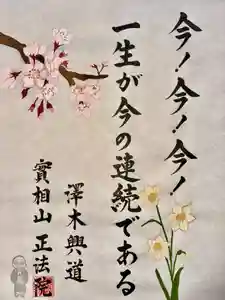 今！今！今！
一生が今の連続である
澤木興道
實相山 正法院